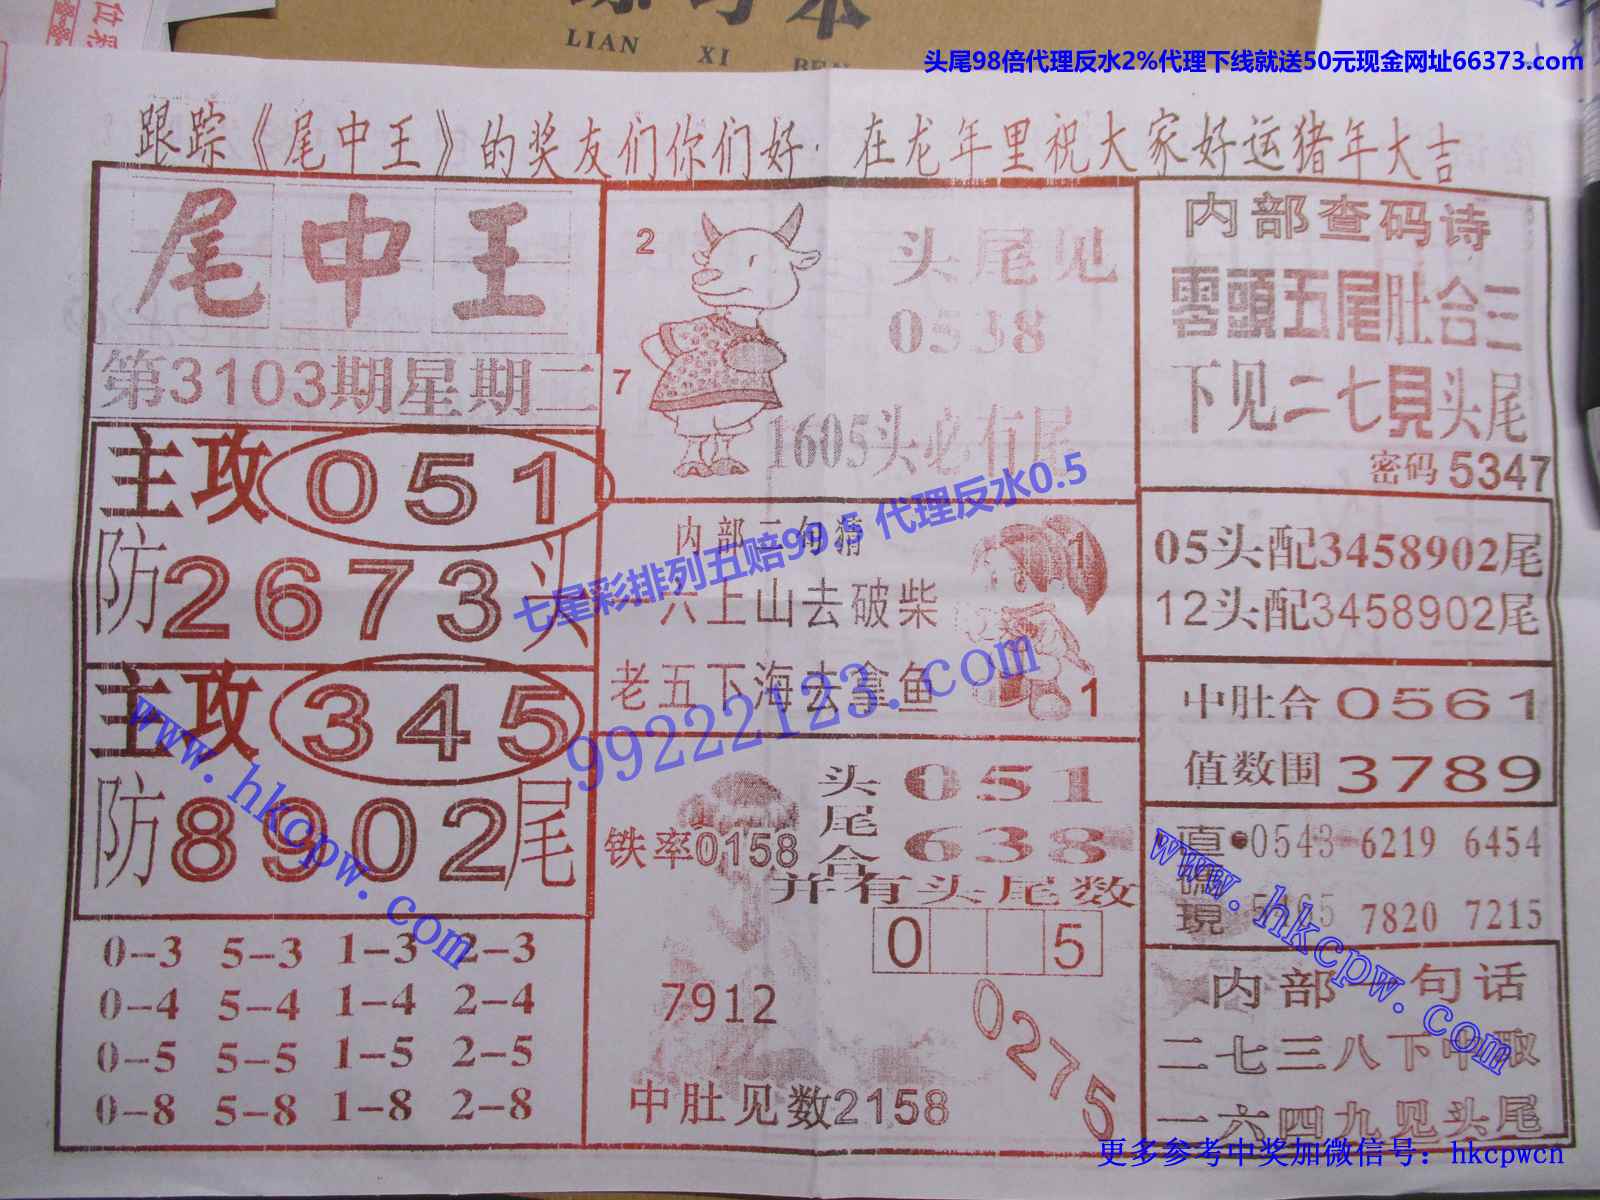 LIAN XI BEN
头尾98倍代理反水2%代理下线就送50元现金网址66373.com
跟踪《尾中王》的奖友们你们好·在龙年里祝大家好运猪年大吉
尾中王
第3103期星期二
主攻051
防2673头
主攻345
防8902尾
0-3 5-3 1-3 2-3
0-4 5-4 1-4 2-4
0-5 5-5 1-5 2-5
0-8 5-8 1-8 2-8
2
7
头尾见
0538
1605头必有尾
内部二句猜
六上山去破柴
老五下海去拿鱼
1
1
七星彩排列五赔99.5 代理反水0.5
99222123.com
头尾合
051
638
铁率0158
并有头尾数
0 5
7912
0275
中肚见数2158
内部查码诗
零頭五尾肚合三
下见二七見头尾
密码5347
05头配3458902尾
12头配3458902尾
中肚合0561
值数围3789
直碼現
0543 6219 6454
7820 7215
内部一句话
二七三八下中取
一六四九见头尾
www.hkcpw.com
www.hkcpw.com
更多参考中奖加微信号：hkcpwcn